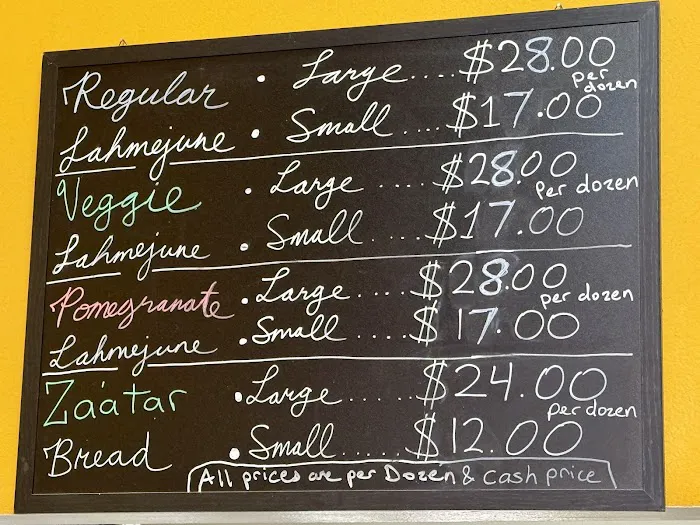 Regular • Large.... $28.00 per dozen
Lahmejune • Small .... $17.00
Veggie • Large .... $28.00 per dozen
Lahmejune • Small..... $17.00
Pomegranate • Large..... $28.00 per dozen
Lahmejune • Small..... $17.00
Za'atar • Large....... $24.00 per dozen
Bread • Small...... $12.00
All prices are per Dozen & cash price